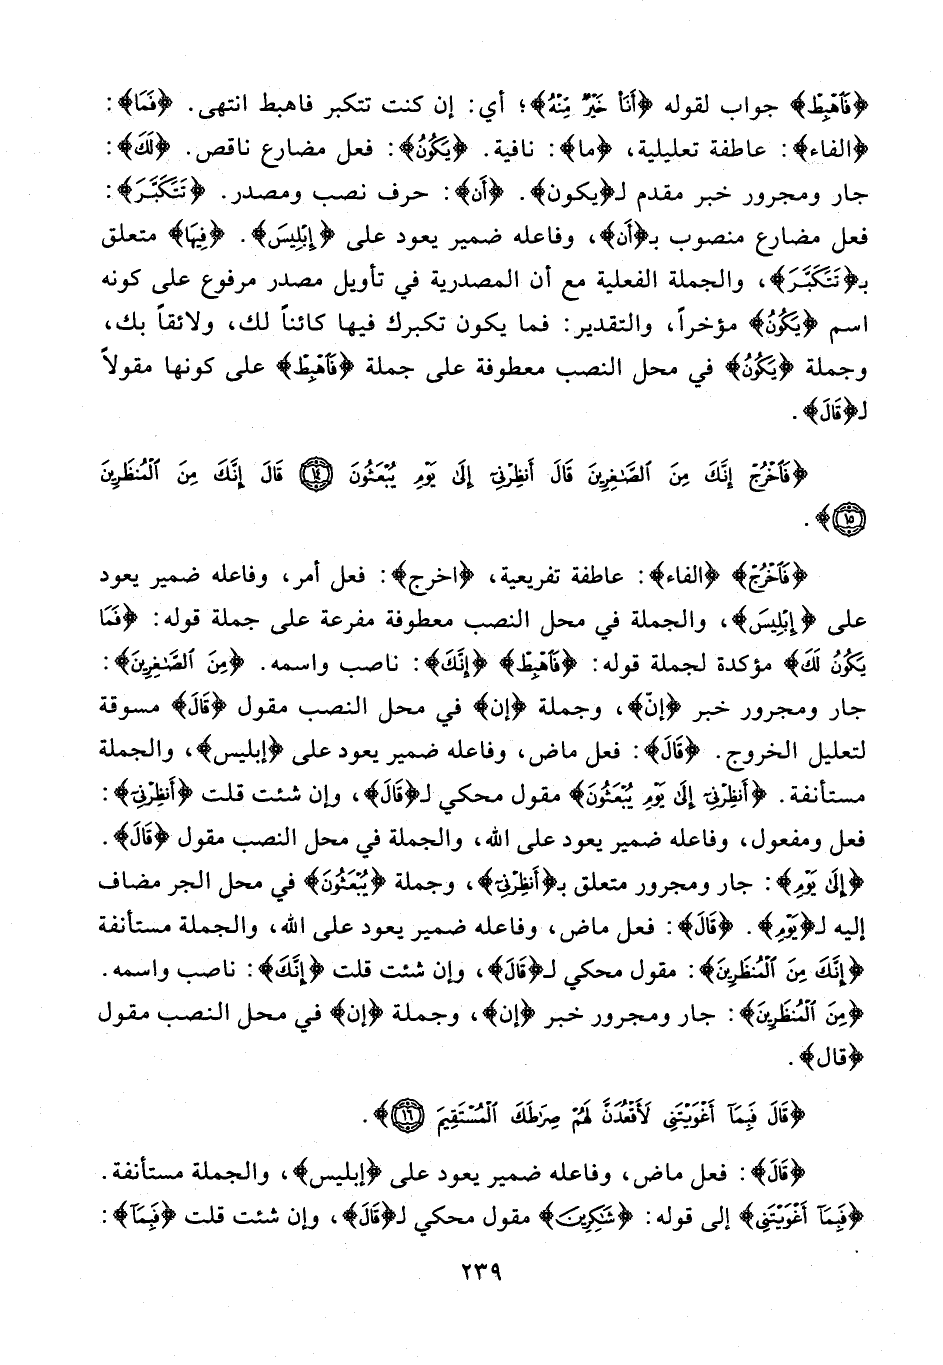 ﴿فَاهْبِطْ﴾ جواب لقوله ﴿أَنَا خَيْرٌ مِنْهُ﴾؛ أي: إن كنت تتكبر فاهبط انتهى. ﴿فَمَا﴾:
﴿الفاء﴾: عاطفة تعليلية، ﴿ما﴾: نافية. ﴿يَكُونُ﴾: فعل مضارع ناقص. ﴿لَكَ﴾:
جار ومجرور خبر مقدم لـ﴿يكون﴾. ﴿أَن﴾: حرف نصب ومصدر. ﴿تَتَكَبَّرَ﴾:
فعل مضارع منصوب بـ﴿أَن﴾، وفاعله ضمير يعود على ﴿إِبْلِيسَ﴾. ﴿فِيهَا﴾ متعلق
بـ﴿تَتَكَبَّرَ﴾، والجملة الفعلية مع أن المصدرية في تأويل مصدر مرفوع على كونه
اسم ﴿يَكُونُ﴾ مؤخراً، والتقدير: فما يكون تكبرك فيها كائناً لك، ولائقاً بك،
وجملة ﴿يَكُونُ﴾ في محل النصب معطوفة على جملة ﴿فَاهْبِطْ﴾ على كونها مقولاً
لـ﴿قَالَ﴾.
﴿فَاخْرُجْ إِنَّكَ مِنَ الصَّاغِرِينَ قَالَ أَنظِرْنِي إِلَى يَوْمِ يُبْعَثُونَ ١٤ قَالَ إِنَّكَ مِنَ الْمُنظَرِينَ
١٥﴾.
﴿فَاخْرُجْ﴾ ﴿الفاء﴾: عاطفة تفريعية، ﴿اخرج﴾: فعل أمر، وفاعله ضمير يعود
على ﴿إِبْلِيسَ﴾، والجملة في محل النصب معطوفة مفرعة على جملة قوله: ﴿فَمَا
يَكُونُ لَكَ﴾ مؤكدة لجملة قوله: ﴿فَاهْبِطْ﴾ ﴿إِنَّكَ﴾: ناصب واسمه. ﴿مِنَ الصَّاغِرِينَ﴾:
جار ومجرور خبر ﴿إنّ﴾، وجملة ﴿إن﴾ في محل النصب مقول ﴿قَالَ﴾ مسوقة
لتعليل الخروج. ﴿قَالَ﴾: فعل ماض، وفاعله ضمير يعود على ﴿إبليس﴾، والجملة
مستأنفة. ﴿أَنظِرْنِي إِلَى يَوْمِ يُبْعَثُونَ﴾ مقول محكي لـ﴿قَالَ﴾، وإن شئت قلت ﴿أَنظِرْنِي﴾:
فعل ومفعول، وفاعله ضمير يعود على الله، والجملة في محل النصب مقول ﴿قَالَ﴾.
﴿إِلَى يَوْمِ﴾: جار ومجرور متعلق بـ﴿أَنظِرْنِي﴾، وجملة ﴿يُبْعَثُونَ﴾ في محل الجر مضاف
إليه لـ﴿يَوْمِ﴾. ﴿قَالَ﴾: فعل ماض، وفاعله ضمير يعود على الله، والجملة مستأنفة
﴿إِنَّكَ مِنَ الْمُنظَرِينَ﴾: مقول محكي لـ﴿قَالَ﴾، وإن شئت قلت ﴿إِنَّكَ﴾: ناصب واسمه.
﴿مِنَ الْمُنظَرِينَ﴾: جار ومجرور خبر ﴿إن﴾، وجملة ﴿إن﴾ في محل النصب مقول
﴿قال﴾.
﴿قَالَ فَبِمَا أَغْوَيْتَنِي لَأَقْعُدَنَّ لَهُمْ صِرَاطَكَ الْمُسْتَقِيمَ ١٦﴾.
﴿قَالَ﴾: فعل ماض، وفاعله ضمير يعود على ﴿إبليس﴾، والجملة مستأنفة.
﴿فَبِمَا أَغْوَيْتَنِي﴾ إلى قوله: ﴿شَاكِرِينَ﴾ مقول محكي لـ﴿قَالَ﴾، وإن شئت قلت ﴿فَبِمَا﴾:
٢٣٩